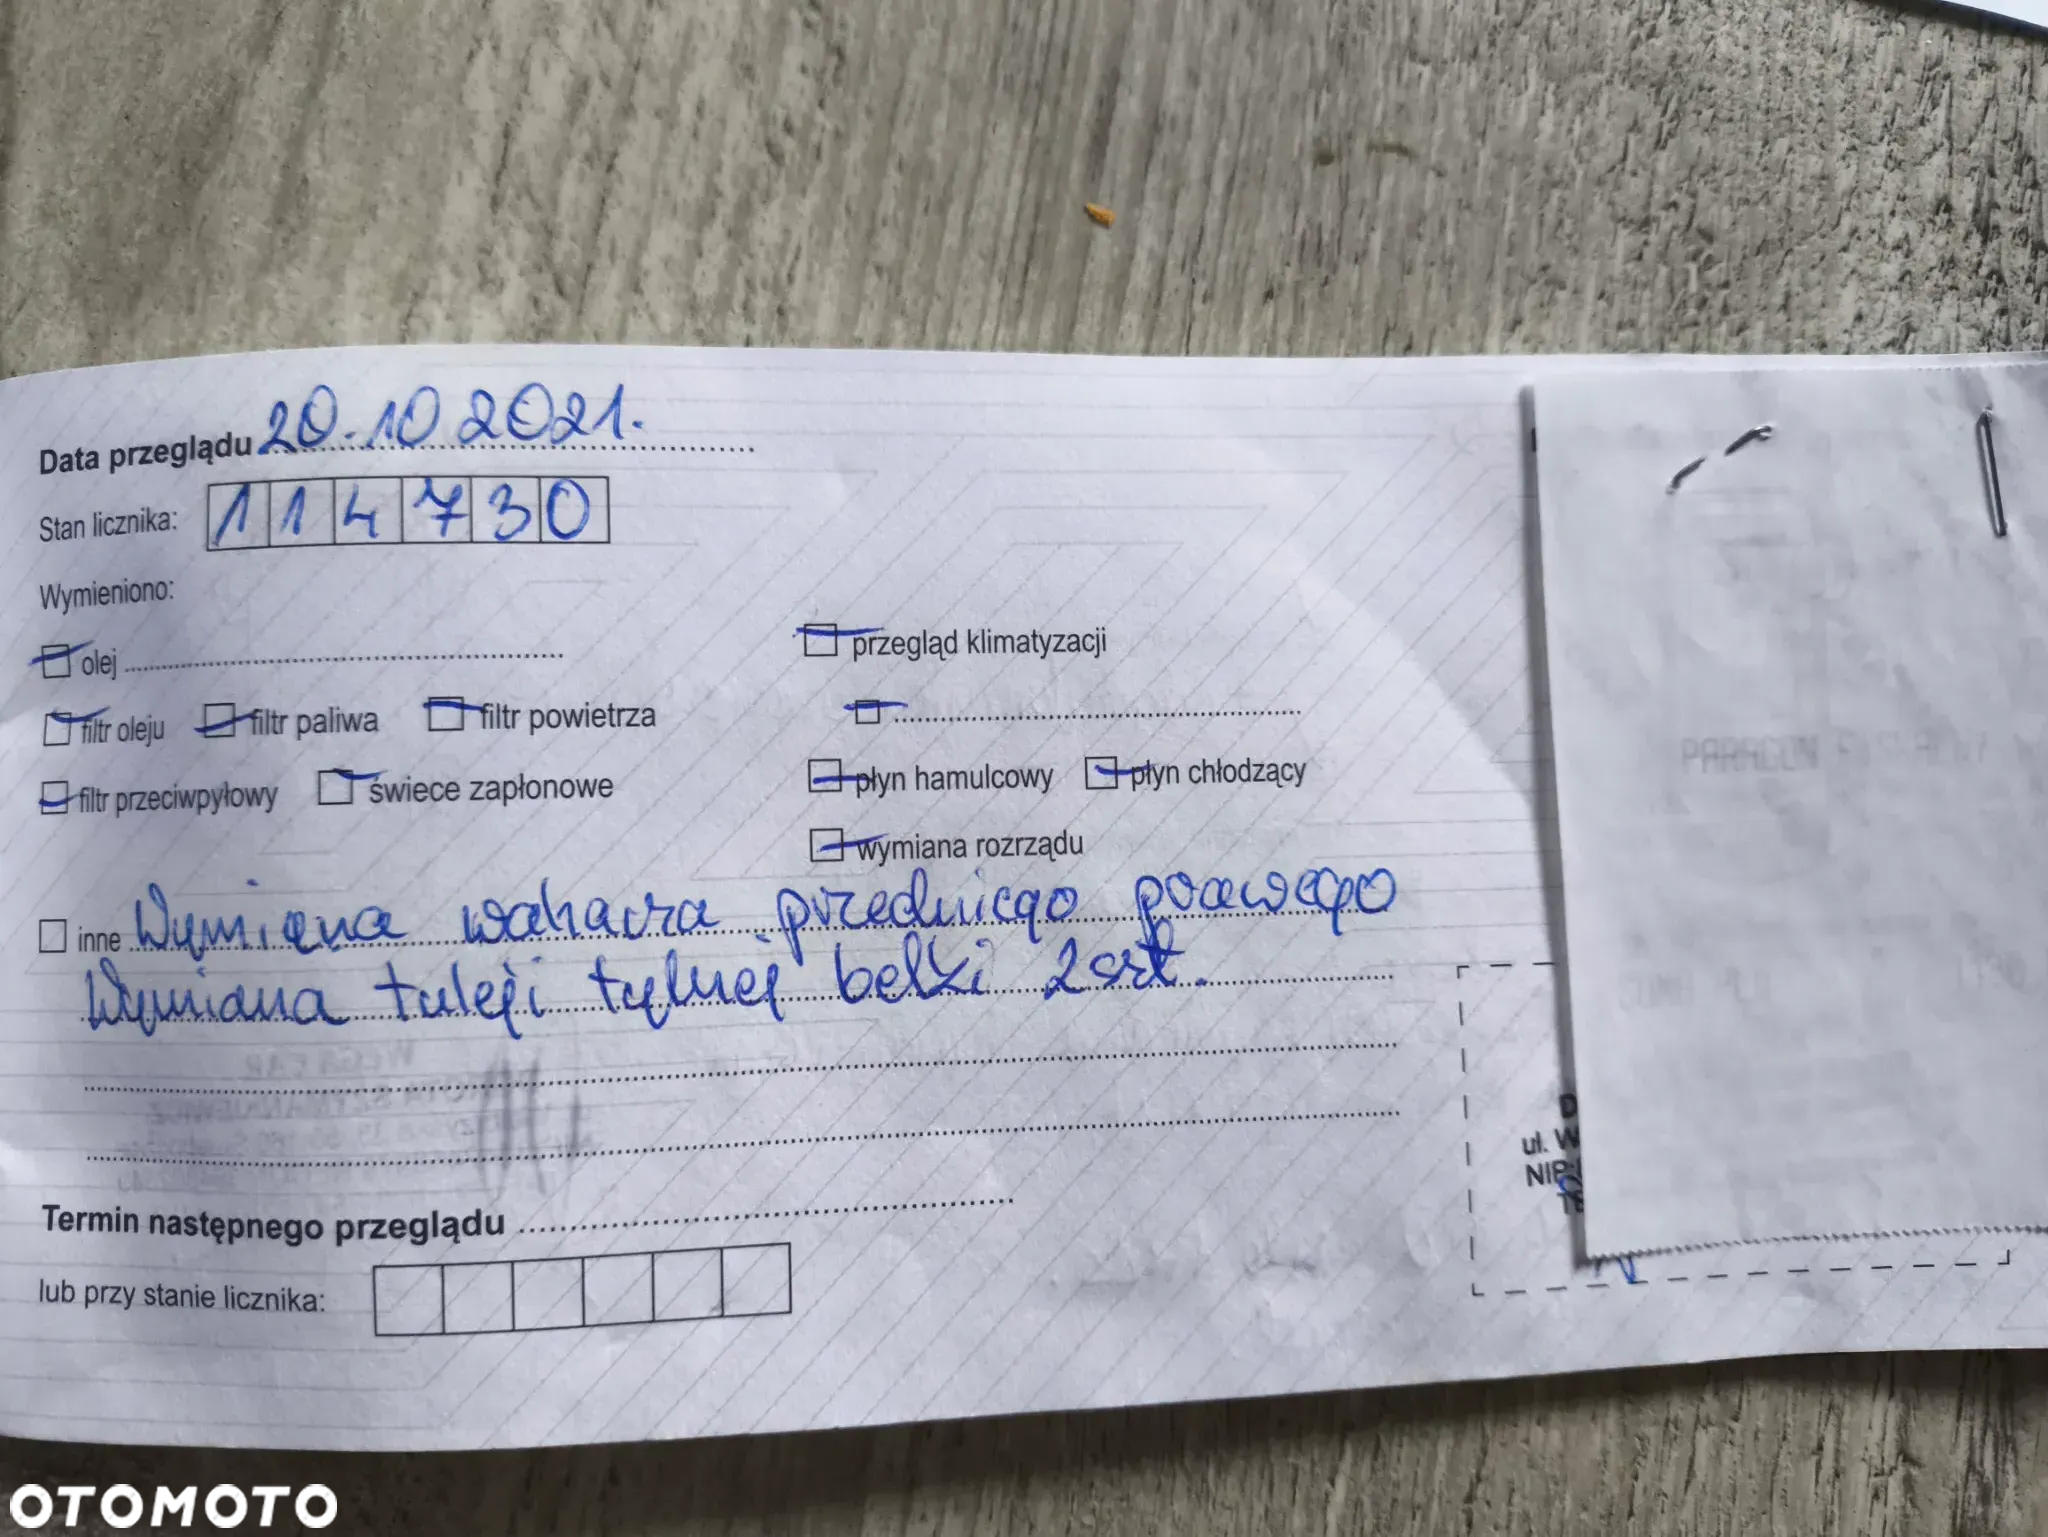 Data przeglądu 20.10 2021.
Stan licznika: 114730
Wymieniono:
olej
przegląd klimatyzacji
filtr oleju filtr paliwa filtr powietrza
filtr przeciwpyłowy świece zapłonowe
płyn hamulcowy płyn chłodzący
wymiana rozrządu
inne Wymiana wahacza przedniego prawego
Wymiana tuleji tylnej belki 2szt.
Termin następnego przeglądu
lub przy stanie licznika:
ul. W
NIP:
PARAGON
OTOMOTO